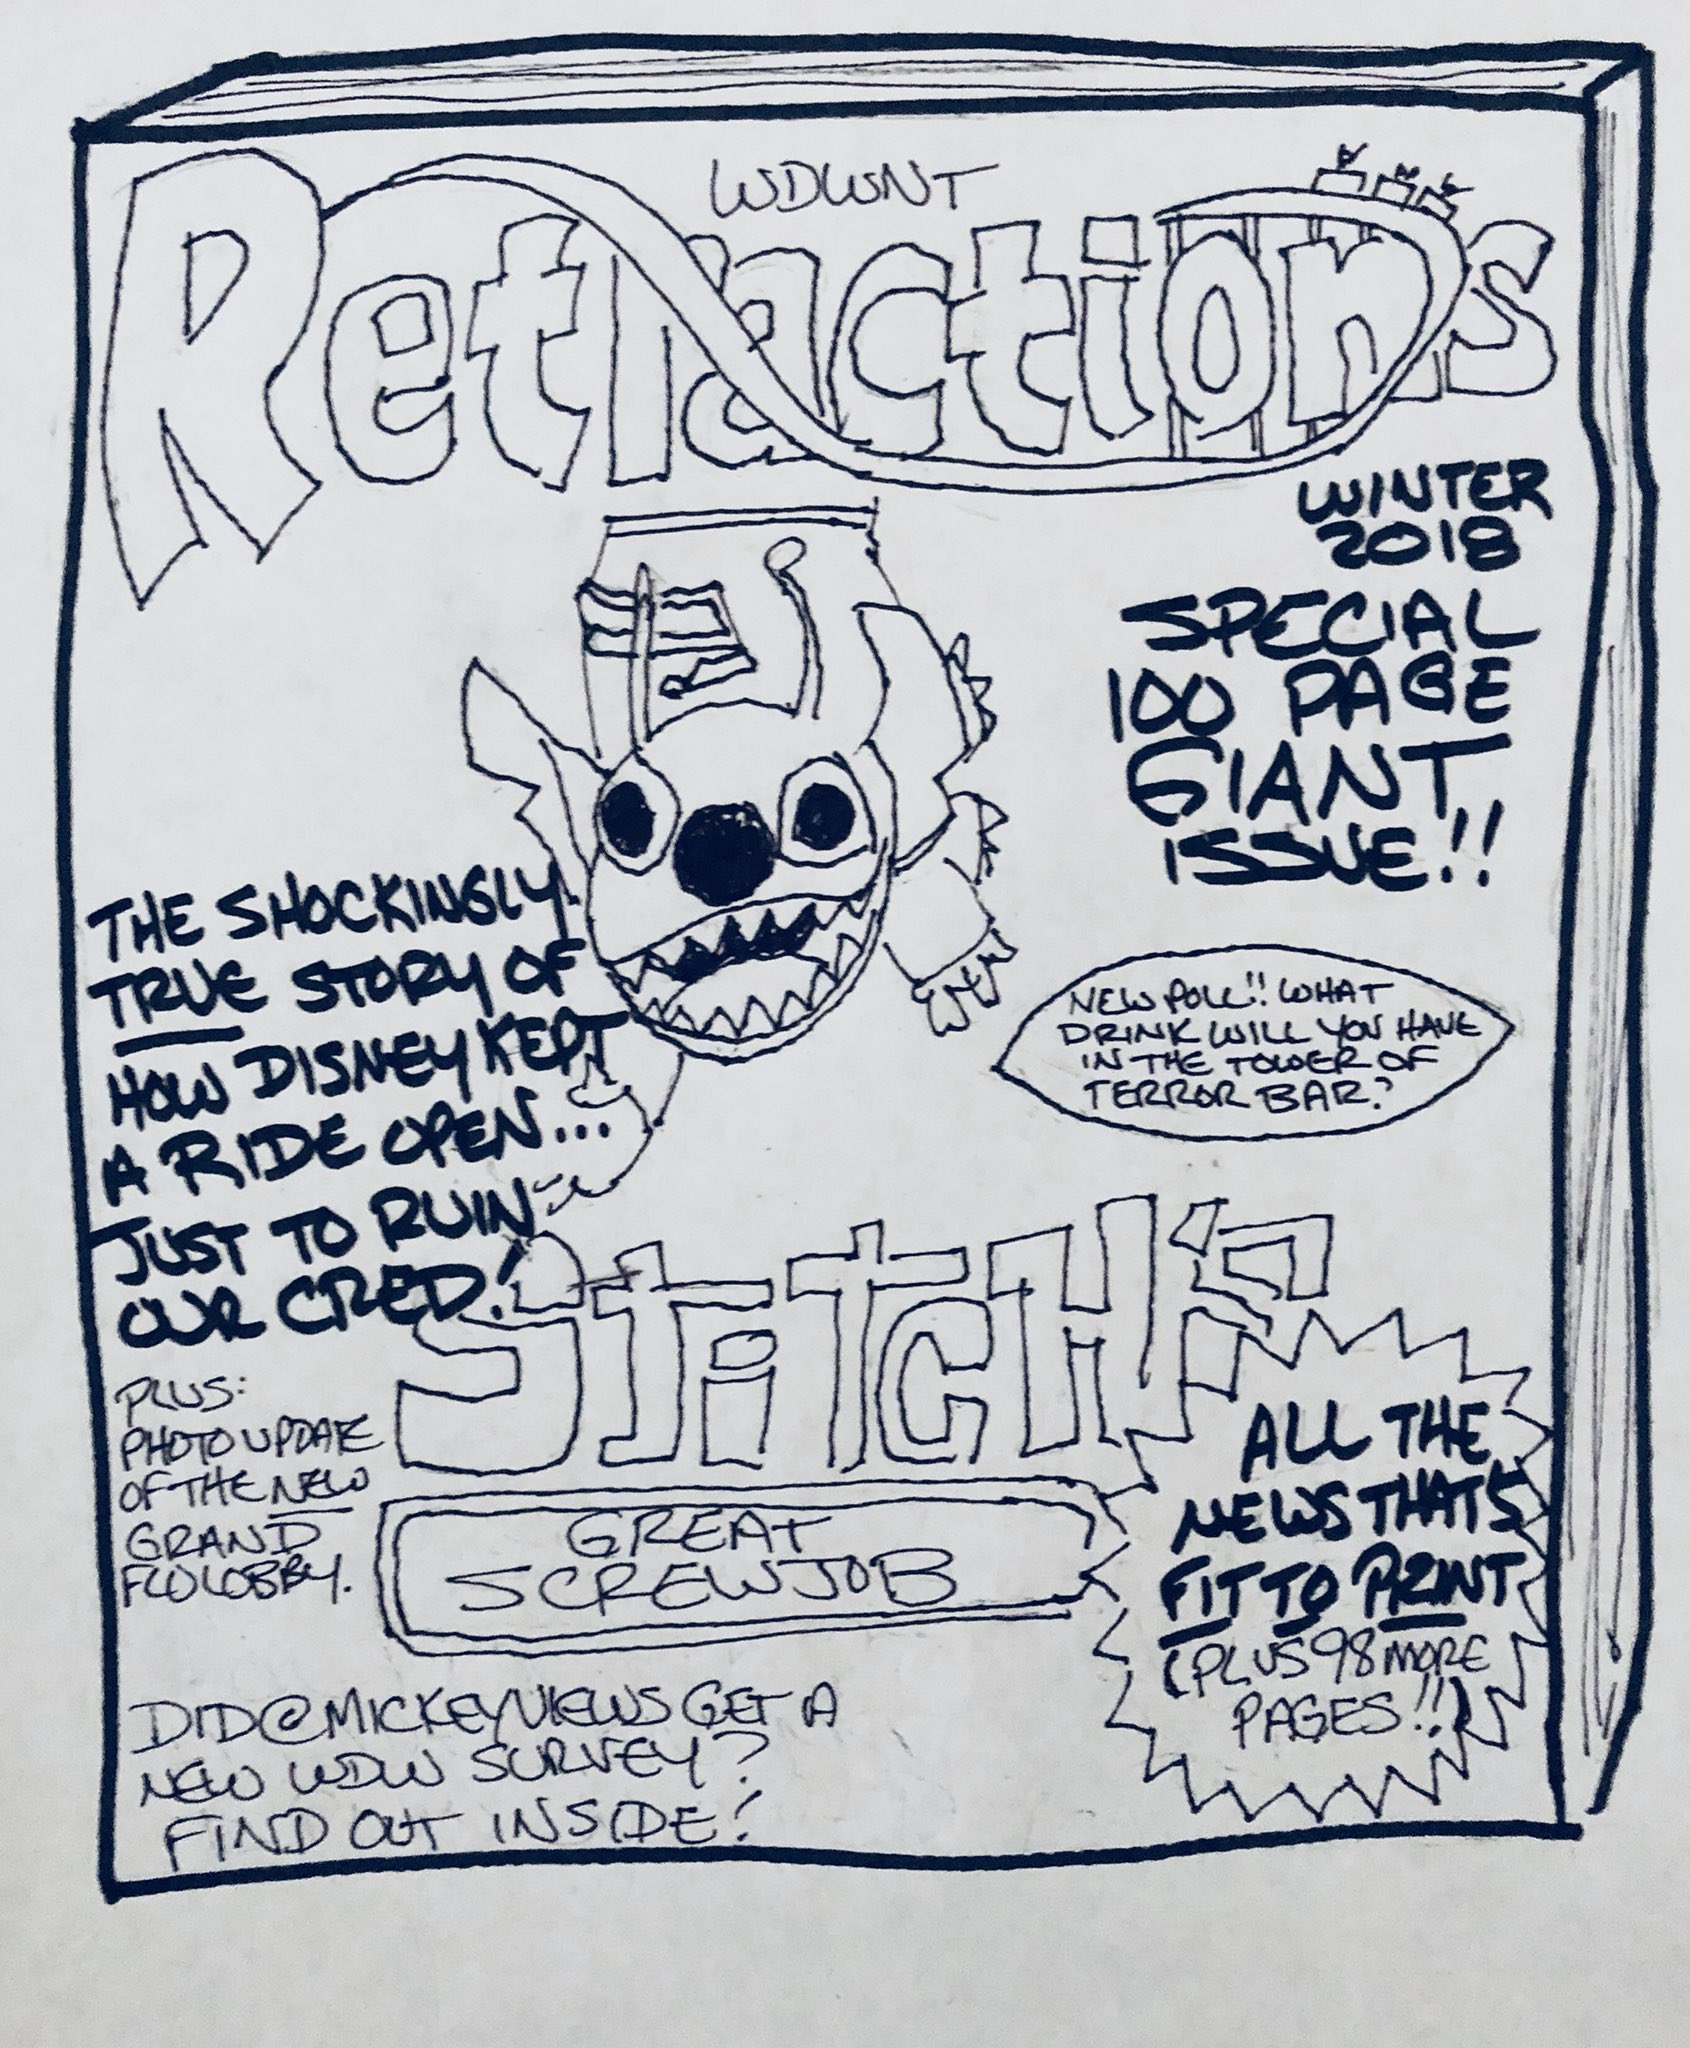 WDWNT
Retractions
WINTER
2018
SPECIAL
100 PAGE
GIANT
ISSUE!!
THE SHOCKINGLY
TRUE STORY OF
HOW DISNEY KEPT
A RIDE OPEN...
JUST TO RUIN
OUR CRED!
NEW POLL!! WHAT
DRINK WILL YOU HAVE
IN THE TOWER OF
TERROR BAR?
STiTCH'S
GREAT
SCREWJOB
PLUS:
PHOTO UPDATE
OF THE NEW
GRAND
FLO LOBBY.
ALL THE
NEWS THAT'S
FIT TO PRINT
(PLUS 98 MORE
PAGES!!)
DID @MICKEYVIEWS GET A
NEW WDW SURVEY?
FIND OUT INSIDE!